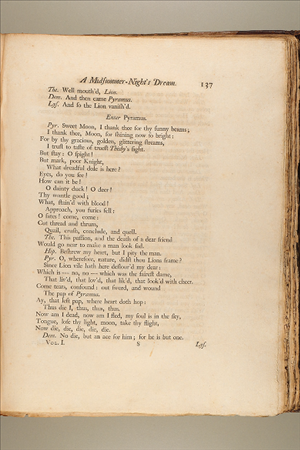 A Midsummer-Night's Dream. 137
The. Well mouth'd, Lion.
Dem. And then came Pyramus.
Lys. And so the Lion vanish'd.
Enter Pyramus.
Pyr. Sweet Moon, I thank thee for thy sunny beams;
I thank thee, Moon, for shining now so bright:
For by thy gracious, golden, glittering streams,
I trust to taste of truest Thisby's sight.
But stay: O spight!
But mark, poor Knight,
What dreadful dole is here?
Eyes, do you see?
How can it be?
O dainty duck! O deer!
Thy mantle good;
What, stain'd with blood!
Approach, you furies fell:
O fates! come, come:
Cut thread and thrum,
Quail, crush, conclude, and quell.
The. This passion, and the death of a dear friend
Would go near to make a man look sad.
Hip. Beshrew my heart, but I pity the man.
Pyr. O, wherefore, nature, didst thou Lions frame?
Since Lion vile hath here deflour'd my dear:
Which is — no, no — which was the fairest dame,
That liv'd, that lov'd, that lik'd, that look'd with cheer.
Come tears, confound: out sword, and wound
The pap of Pyramus.
Ay, that left pap, where heart doth hop:
Thus die I, thus, thus, thus.
Now am I dead, now am I fled, my soul is in the sky,
Tongue, lose thy light, moon, take thy flight,
Now die, die, die, die, die.
Dem. No die, but an ace for him; for he is but one.
VOL. I. S Lys.